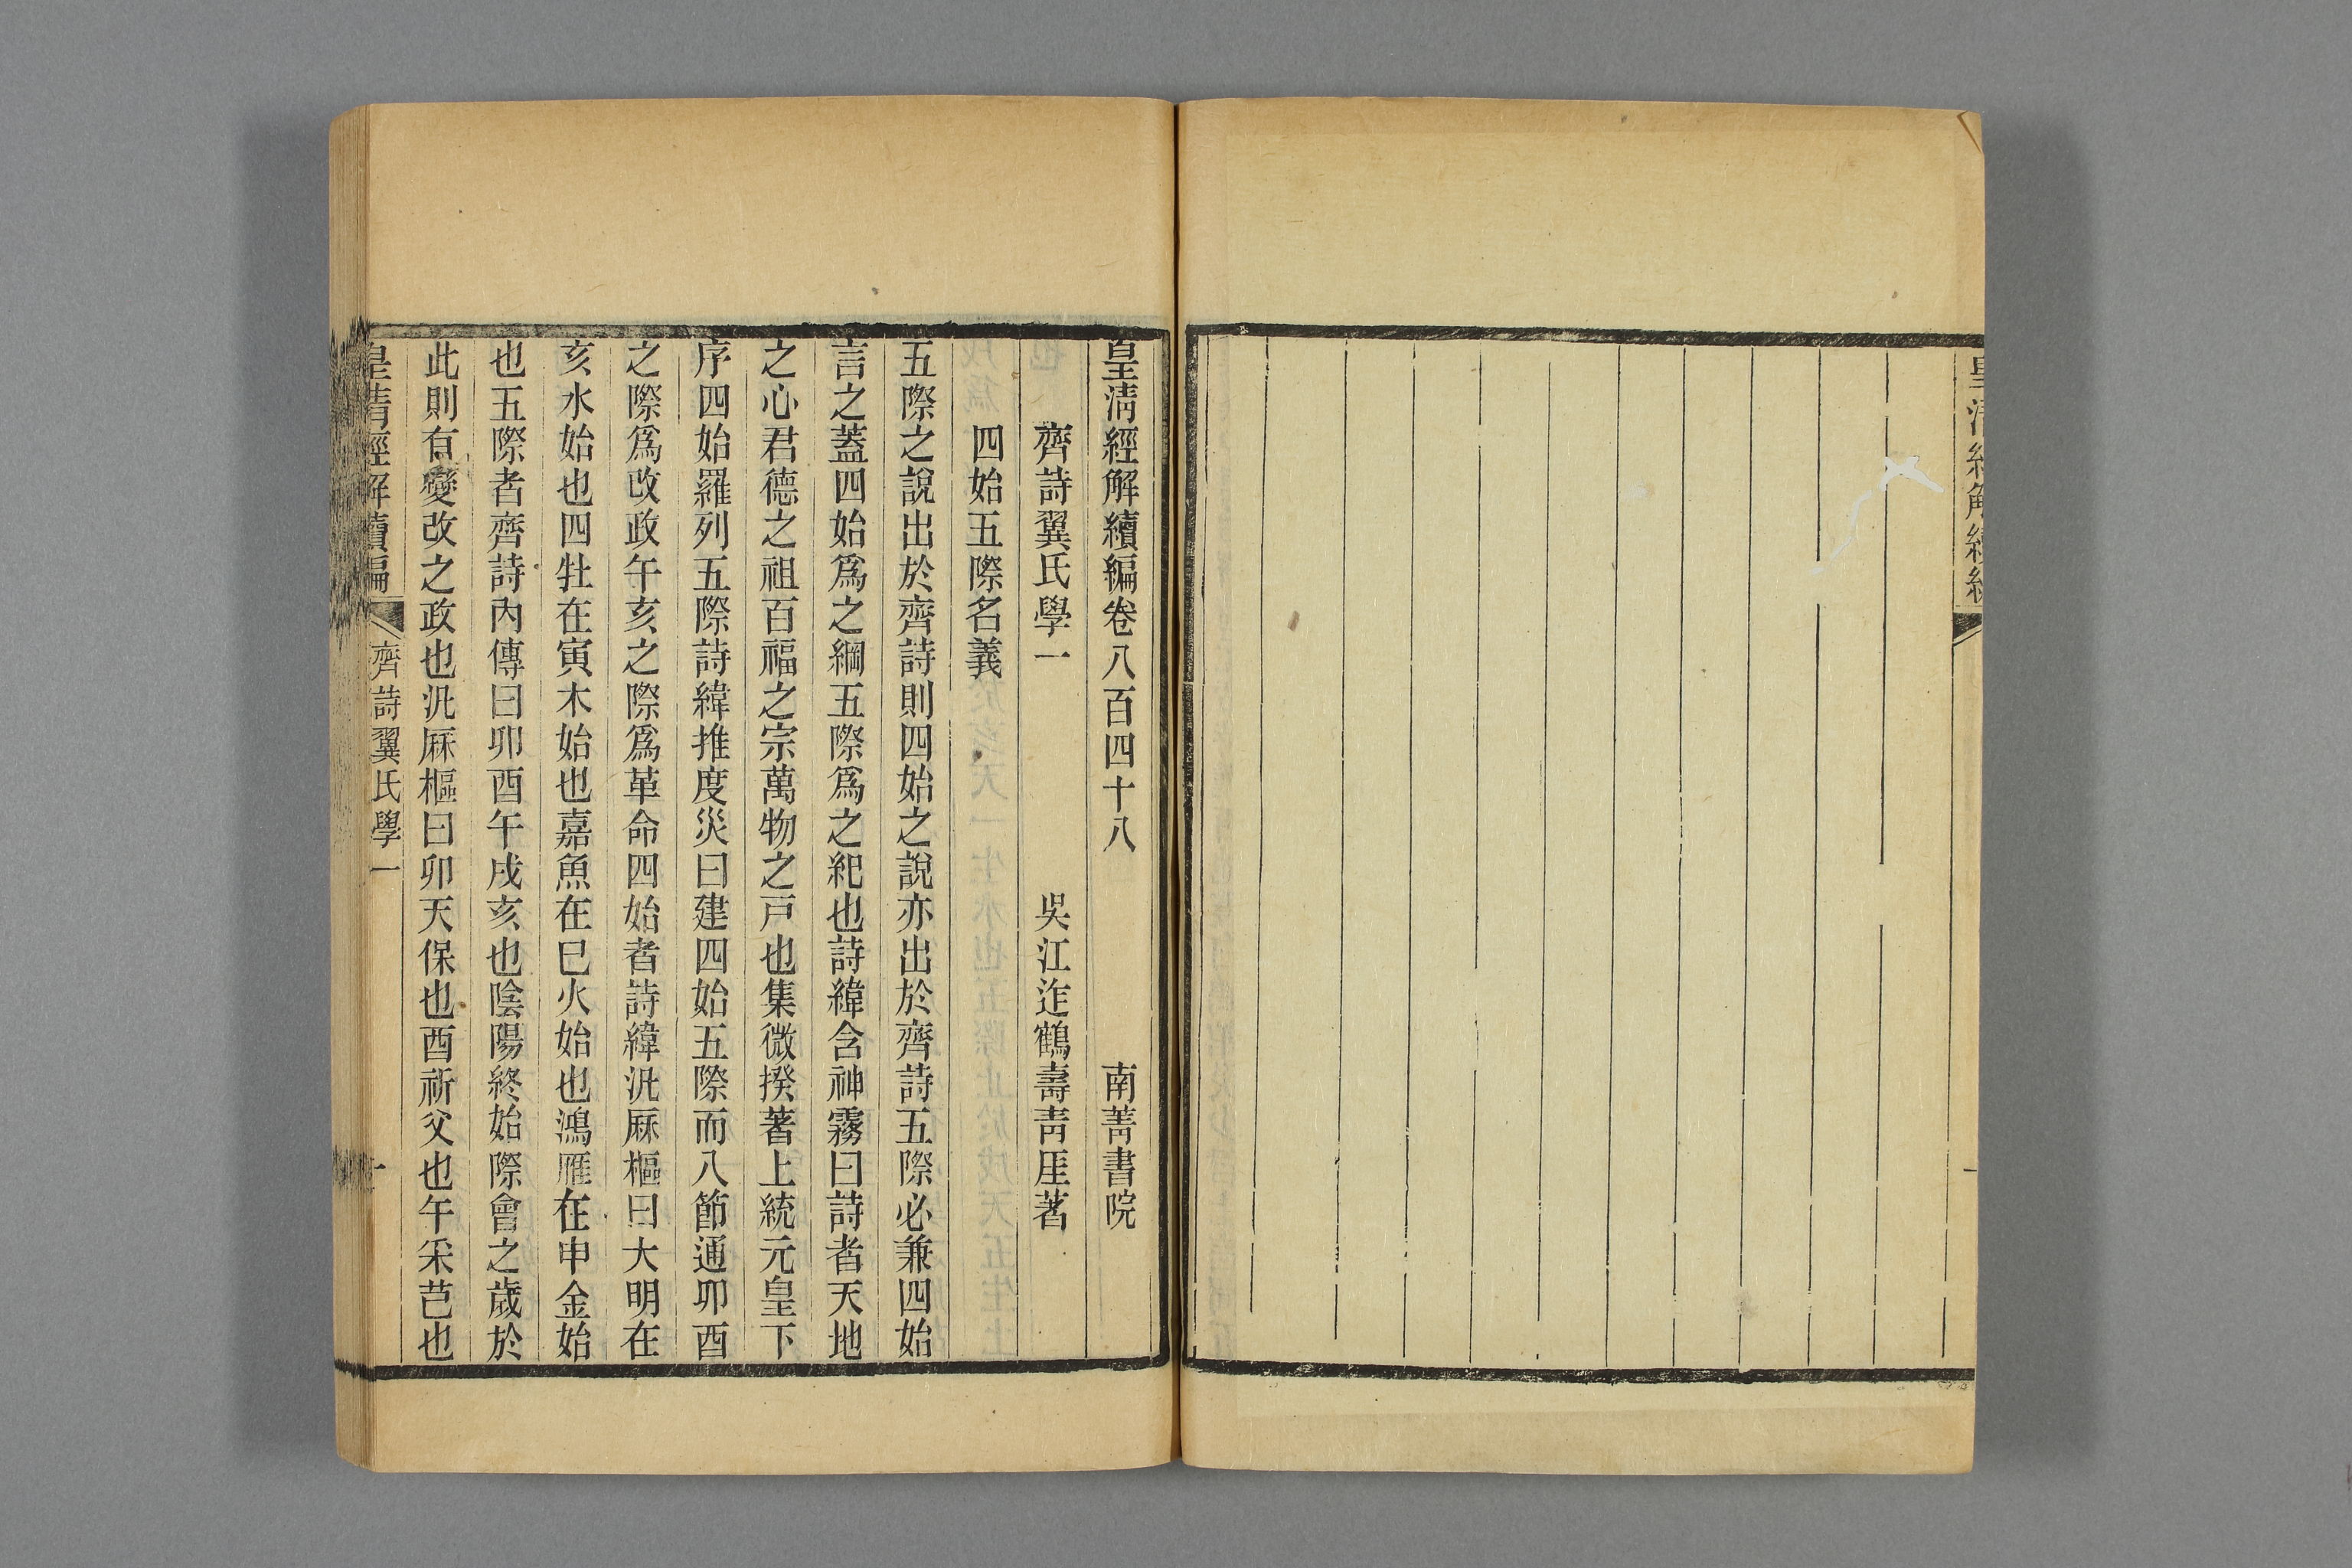 皇淸經解續編卷八百四十八　南菁書院
齊詩翼氏學一　吳江迮鶴壽靑厓著
四始五際名義
五際之說出於齊詩則四始之說亦出於齊詩五際必兼四始
言之蓋四始爲之綱五際爲之紀也詩緯含神霧曰詩者天地
之心君德之祖百福之宗萬物之戸也集微揆著上統元皇下
序四始羅列五際詩緯推度災曰建四始五際而八節通卯酉
之際爲改政午亥之際爲革命四始者詩緯汎厤樞曰大明在
亥水始也四牡在寅木始也嘉魚在巳火始也鴻雁在申金始
也五際者齊詩內傳曰卯酉午戌亥也陰陽終始際會之歲於
此則有變改之政也汎厤樞曰卯天保也酉祈父也午采芑也
皇淸經解續編　齊詩翼氏學一